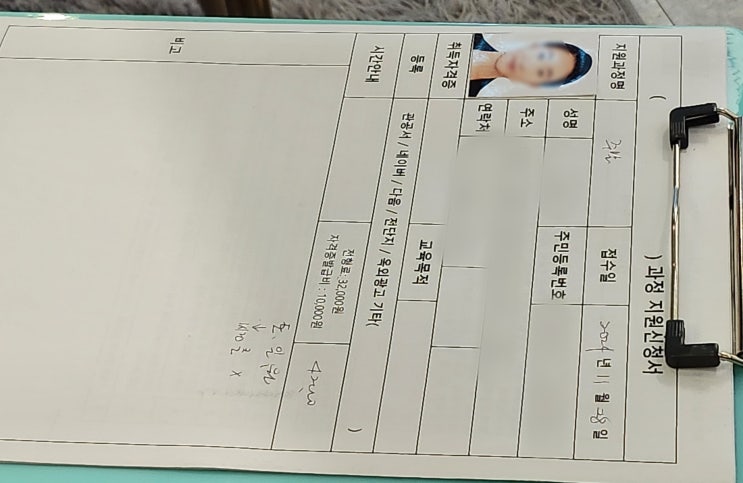 ( ) 과정 지원신청서
지원과정명 접수일 2024년 11월 28일
성명 주민등록번호
주소
연락처
취득자격증 교육목적
등록 관공서 / 네이버 / 다음 / 전단지 / 옥외광고 기타( )
시간안내 전형료 : 32,000원
자격증발급비 : 10,000원
비고